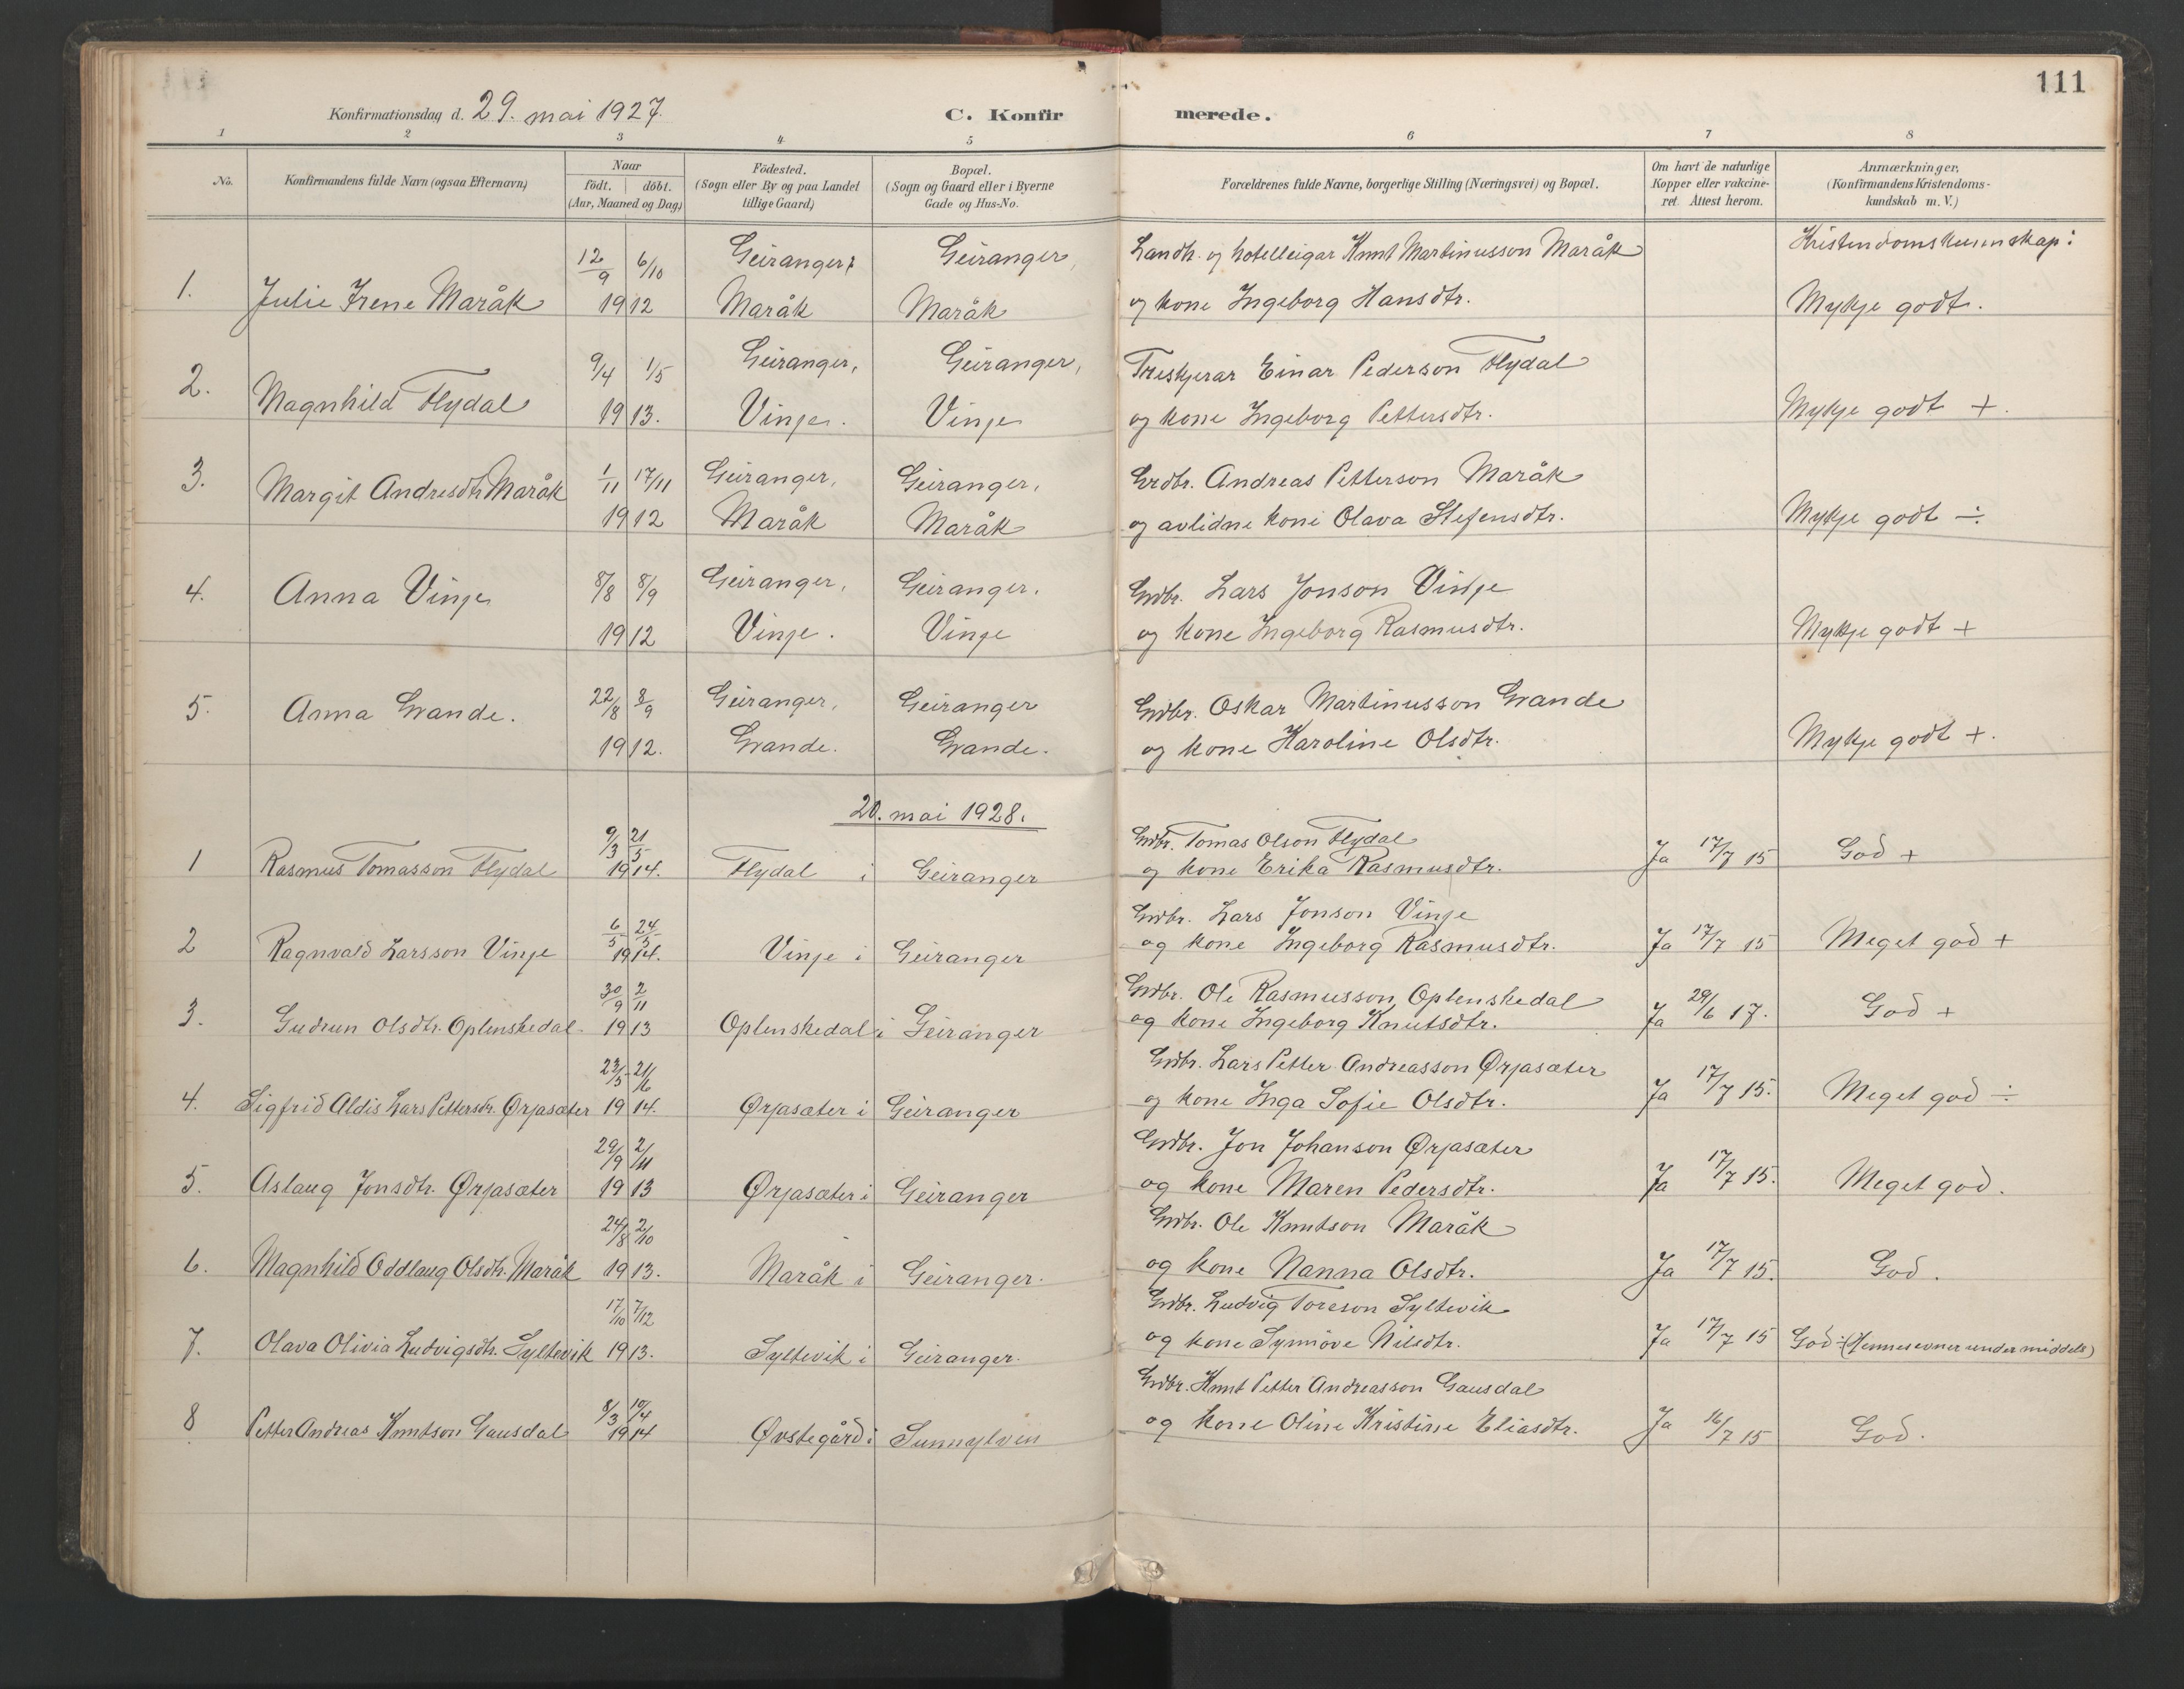 111
Konfirmationsdag d. 29. mai 1927. C. Konfirmerede.
1 2 3 4 5 6 7 8
No. Konfirmandens fulde Navn (ogsaa Efternavn) Naar födt. döbt. (Aar, Maaned og Dag) Födested. (Sogn eller By og paa Landet tillige Gaard) Bopæl. (Sogn og Gaard eller i Byerne Gade og Hus-No. Forældrenes fulde Navne, borgerlige Stilling (Næringsvei) og Bopæl. Om havt de naturlige Kopper eller vakcineret. Attest herom. Anmærkninger, (Konfirmandens Kristendomskundskab m. V.)
Kristendomskunnskap:
12/9 6/10 Geiranger, Geiranger, Landh. og hotelleigar Knut Martinusson Maråk
1. Julie Irene Maråk 1912 Maråk Maråk og kone Ingeborg Hansdtr. Mykje godt.
9/4 1/5 Geiranger, Geiranger, Treskjerar Einar Pederson Flydal
2. Magnhild Flydal 1913. Vinje. Vinje og kone Ingeborg Pettersdtr. Mykje godt +.
1/11 17/11 Geiranger, Geiranger, Grdbr. Andreas Petterson Maråk
3. Margit Andresdtr. Maråk 1912 Maråk Maråk og avlidne kone Olava Stefensdtr. Mykje godt ÷
8/8 8/9 Geiranger, Geiranger. Grdbr. Lars Jonson Vinje
4. Anna Vinje 1912 Vinje. Vinje og kone Ingeborg Rasmusdtr. Mykje godt +
22/8 8/9 Geiranger, Geiranger Grdbr. Oskar Martinusson Grande
5. Anna Grande. 1912. Grande. Grande. og kone Karoline Olsdtr. Mykje godt +.
20. mai 1928.
9/3 21/5 Grdbr. Tomas Olson Flydal
1 Rasmus Tomasson Flydal 1914. Flydal i Geiranger og kone Erika Rasmusdtr. Ja 17/7 15 God +
6/5 24/5 Grdbr. Lars Jonson Vinje
2 Ragnvald Larsson Vinje 1914. Vinje i Geiranger og kone Ingeborg Rasmusdtr. Ja 17/7 15 Meget god +
30/9 2/11 Grdbr. Ole Rasmusson Oplenskedal
3. Gudrun Olsdtr. Oplenskedal. 1913 Oplenskedal i Geiranger og kone Ingeborg Knutsdtr. Ja 29/6 17. God +
23/5 21/6 Grdbr. Lars Petter Andreasson Ørjasæter
4. Sigfrid Aldis Lars Pettersdr. Ørjasæter 1914. Ørjasæter i Geiranger og kone Inga Sofie Olsdtr. Ja 17/7 15. Meget god ÷
29/9 2/11 Grdbr. Jon Johanson Ørjasæter
5. Aslaug Jonsdtr. Ørjasæter 1913 Ørjasæter i Geiranger og kone Maren Pedersdtr. Ja 17/7 15. Meget god.
24/8 2/10 Grdbr. Ole Knutson Maråk
6. Magnhild Oddlaug Olsdtr. Maråk 1913. Maråk i Geiranger. og kone Nanna Olsdtr. Ja 17/7 15. God.
17/10 7/12 Grdbr. Ludvig Toreson Syltevik
7. Olava Olivia Ludvigsdtr. Syltevik 1913. Syltevik i Geiranger. og kone Synnøve Nilsdtr. Ja 17/7 15 God ÷ (Hennes evner under middels)
8/3 10/4 Grdbr. Knut Petter Andreasson Gausdal
8 Petter Andreas Knutson Gausdal 1914 Øvstegård i Sunnylven og kone Oline Kristine Eliasdtr. Ja 16/7 15 God.